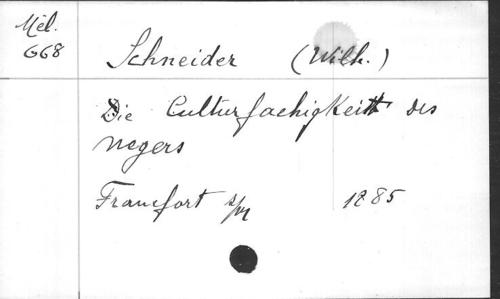 Mél.
668
Schneider (Wilh.)
Die Culturfaehigkeit des
negers
Francfort s/M 1885